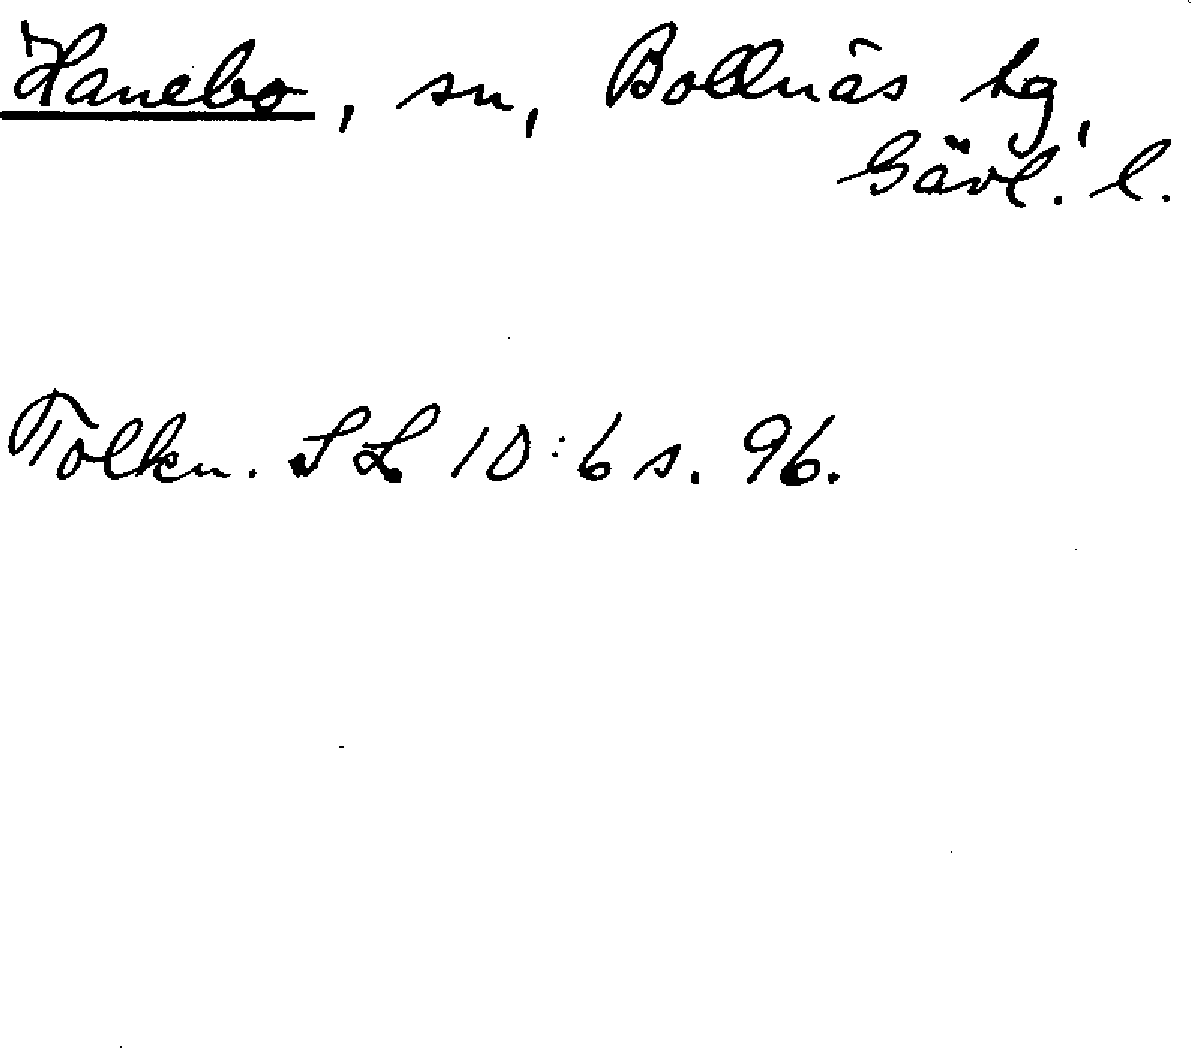 Hanebo, sn, Bollnäs tg,
Gävl. l.
Tolkn. SL 10:6 s. 96.